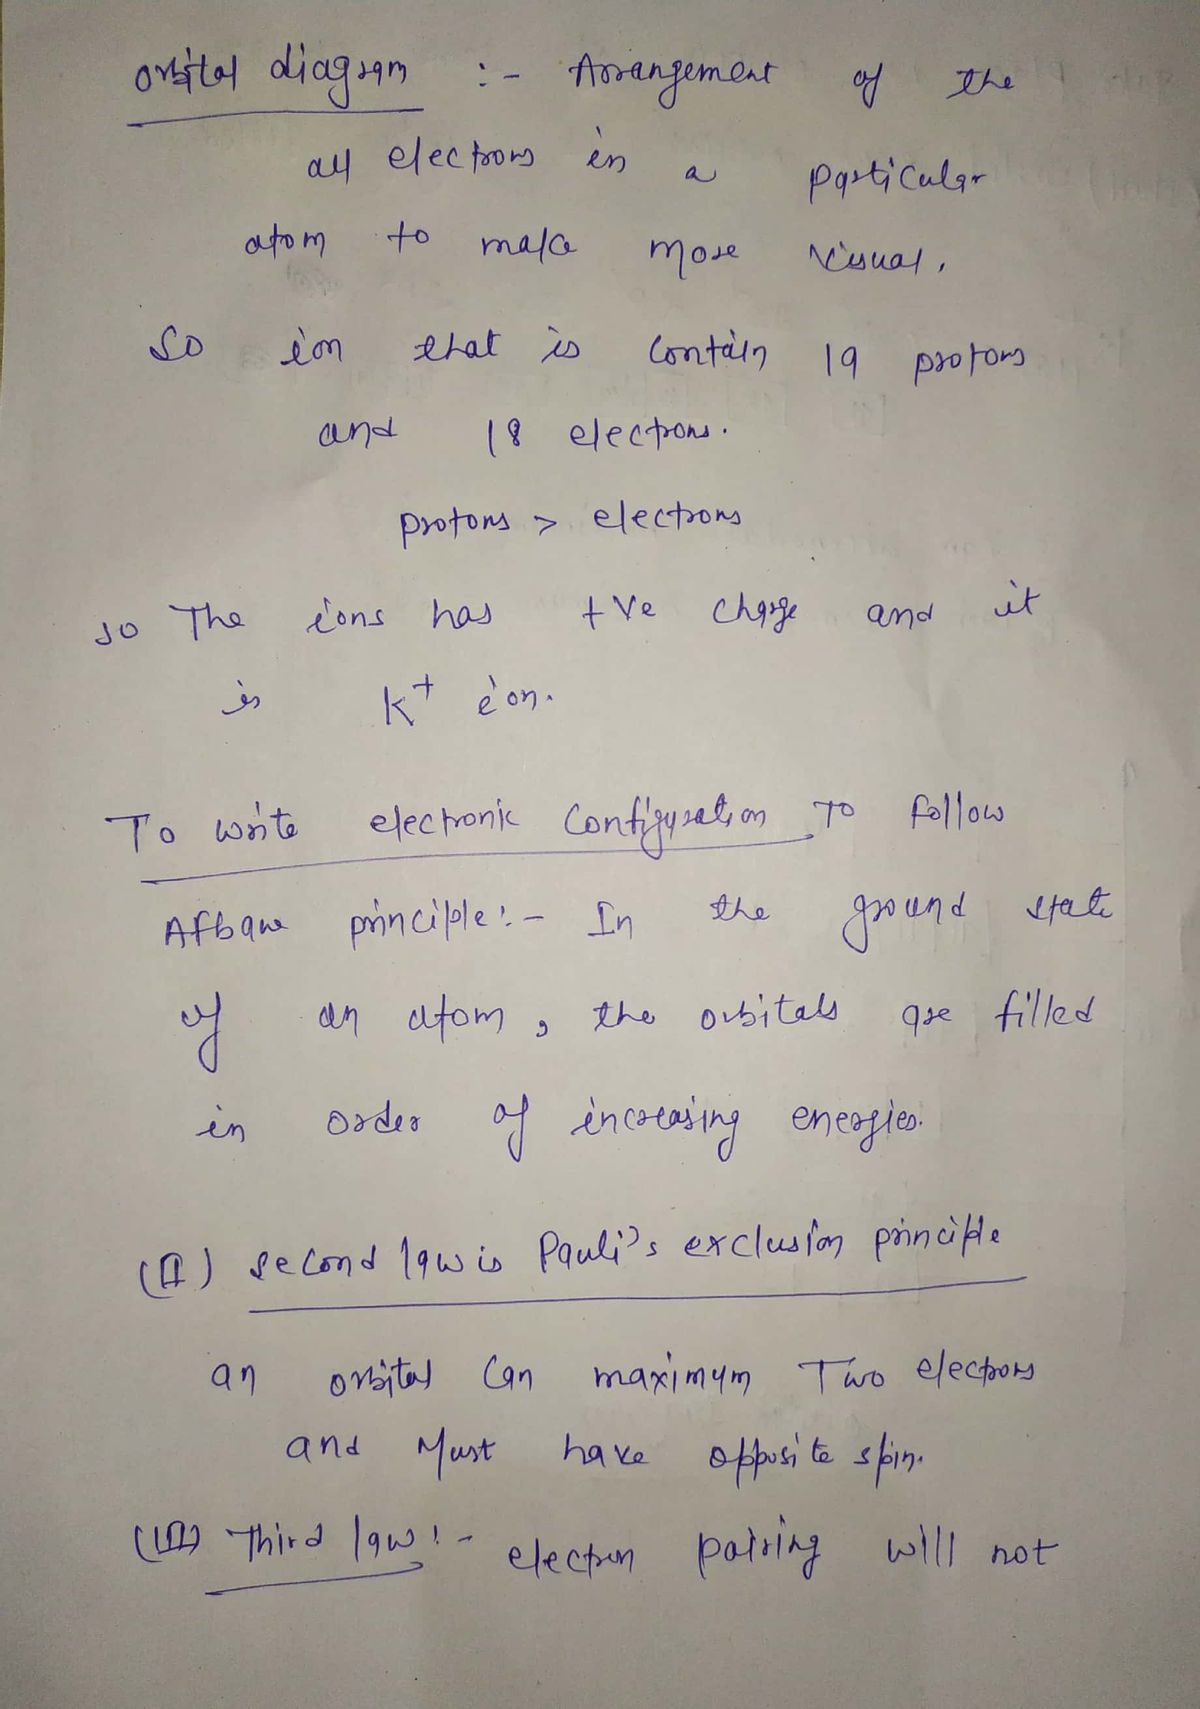 orbital diagram :- Arrangement of the
all electrons in a particular
atom to make more visual.
So ion that is contain 19 protons
and 18 electrons.
protons > electrons
so The ions has +ve charge and it
is K+ ion.
To write electronic configuration To follow
Afbaue principle:- In the ground state
of an atom, the orbitals are filled
in order of increasing energies.
(II) second law is Pauli's exclusion principle
an orbital can maximum Two electrons
and Must have opposite spin.
(III) Third law:- electron pairing will not